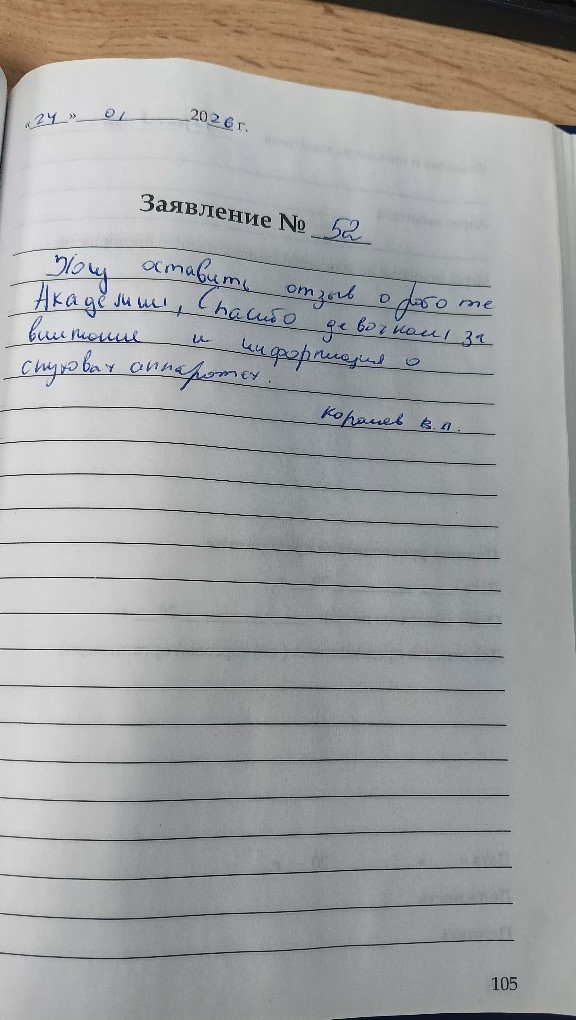 «24» 01 2026 г.
Заявление № 52
Хочу оставить отзыв о работе
Академии, Спасибо девочкам за
внимание и информация о
слуховых аппаратах.
В.П.
105